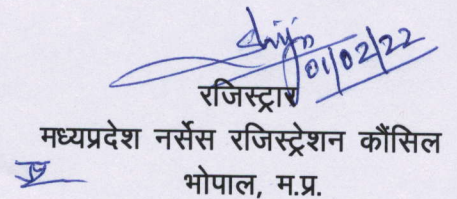 01/02/22
रजिस्ट्रार
मध्यप्रदेश नर्सेस रजिस्ट्रेशन कौंसिल
भोपाल, म.प्र.